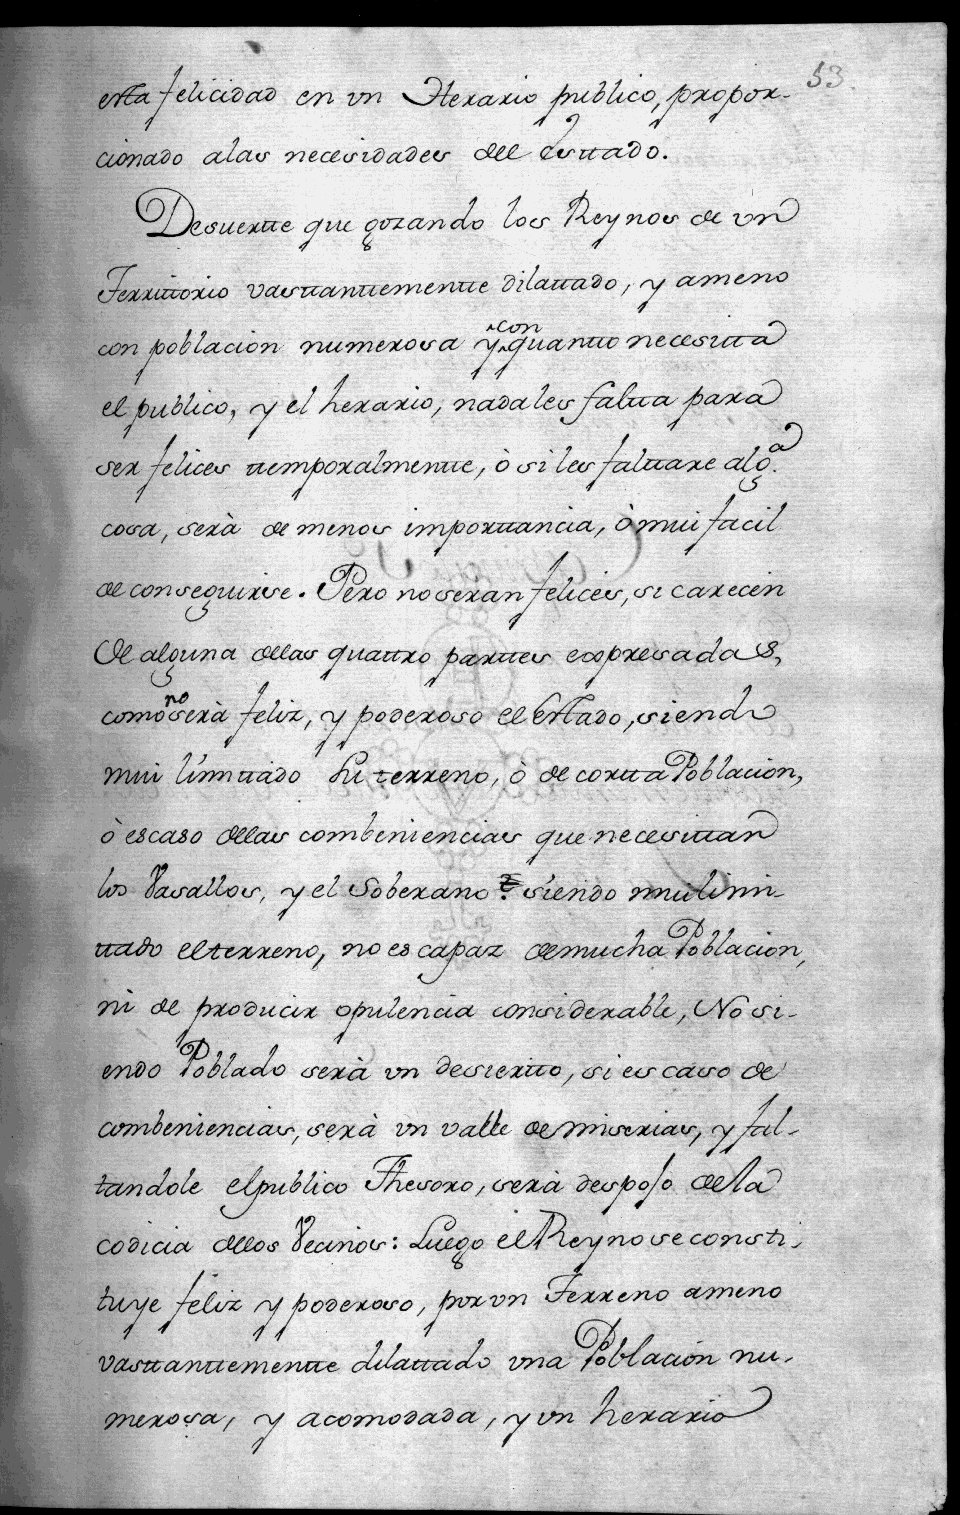 53
esta felicidad en vn Herario publico, propor-
cionado alas necesidades del Esttado.
Desuertte que gozando los Reynos de vn
Territtorio vasttanttementte dilattado, y ameno
con poblacion numerosa y con quantto necesitta
el publico, y el herario, nada les faltta para
ser felices ttemporalmentte, ò si les falttare alg.ª
cosa, serà de menos importtancia, ò mui facil
de conseguirse. Pero no seran felices, si carecen
de alguna dellas quattro parttes expresadas,
como no serà feliz, y poderoso el estado, siendo
mui limittado su terreno, ò de cortta Poblacion,
ò escaso dellas combeniencias que necesittan
los Vasallos, y el Soberano: siendo mui limi-
ttado el terreno, no es capaz de mucha Poblacion,
ni de producir opulencia considerable, No si-
endo Poblado serà vn desiertto, si escaso de
combeniencias, serà vn valle de miserias, y fal-
tandole el publico Thesoro, serà despojo de la
codicia dellos Vecinos: Luego el Reyno se consti-
tuye feliz y poderoso, por vn Terreno ameno
vasttanttementte dilattado vna Poblacion nu-
merosa, y acomodada, y vn herario